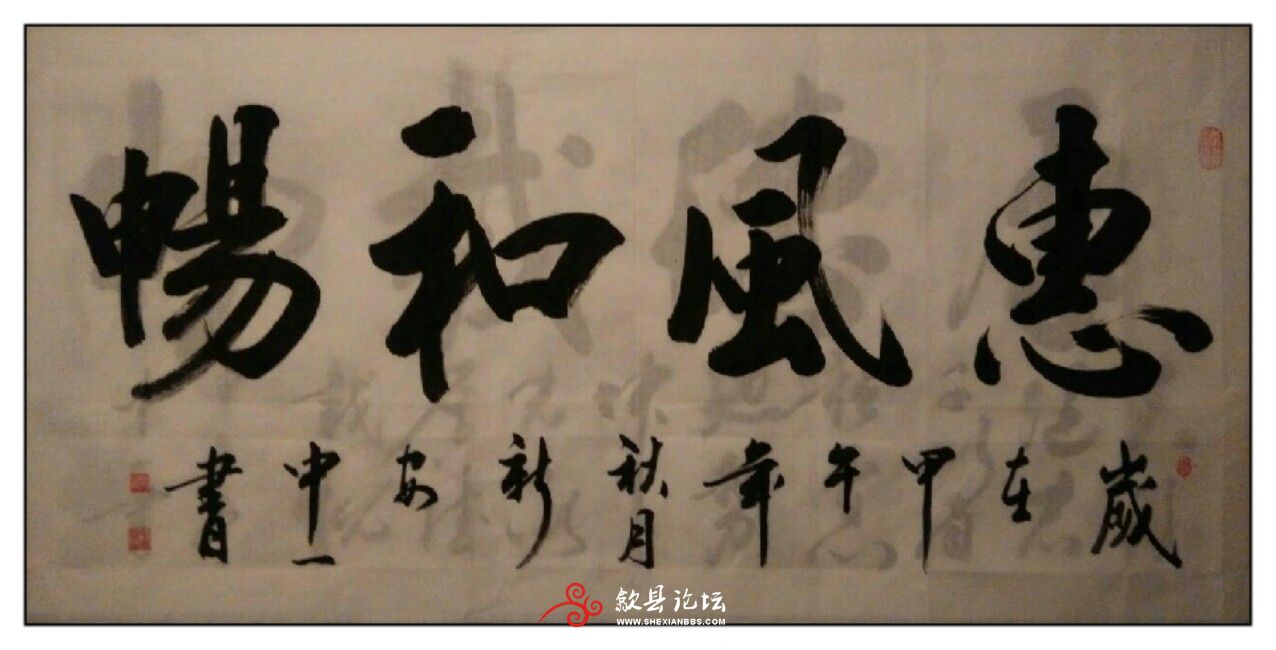 惠風和暢
歲在甲午年秋月新安中一書
歙县论坛
WWW.SHEXIANBBS.COM